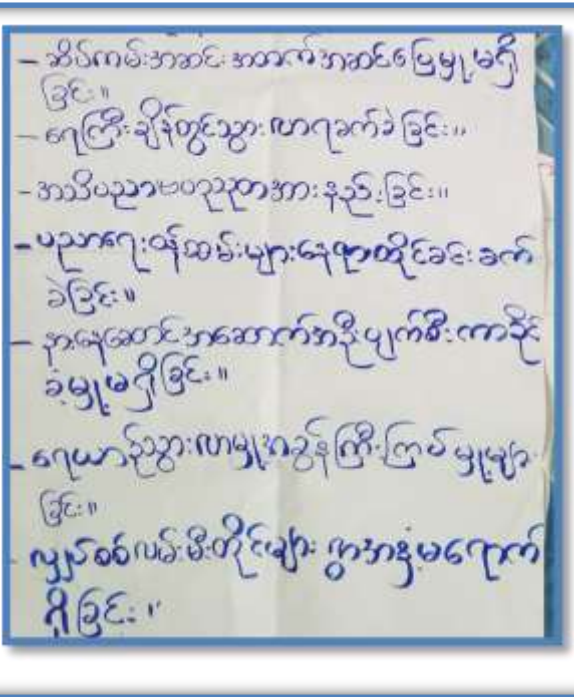 - ဆိပ်ကမ်းအဆင်းအတက်အဆင်ပြေမှုမရှိ
ခြင်း။
- ရေကြီးချိန်တွင်သွားလာရခက်ခဲခြင်း။
- အသိပညာဗဟုသုတအားနည်းခြင်း။
- ပညာရေးဝန်ထမ်းများနေရာထိုင်ခင်းခက်
ခဲခြင်း။
- နားနေဆောင်အဆောက်အဦးပျက်စီးကာခိုင်
ခံ့မှုမရှိခြင်း။
- ရေယာဉ်သွားလာမှုအခွန်ကြီးကြပ်မှုများ
ခြင်း။
- လျှပ်စစ်လမ်းမီးတိုင်များ ရွာအနှံ့မရောက်
ရှိခြင်း။